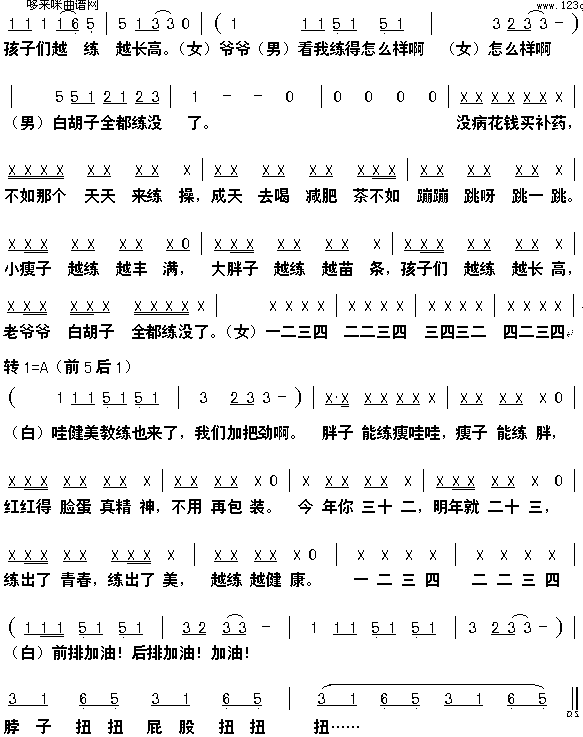 哆来咪曲谱网 www.123
1 1 1 1 6 5 | 5 1 3 3 0 | ( 1 - - - | 3 2 3 3 - )
孩子们越 练 越长高。（女）爷爷（男）看我练得怎么样啊 （女）怎么样啊
| 5 5 1 2 1 2 3 | 1 - - 0 | 0 0 0 0 | X X X X X X X |
（男）白胡子全都练没 了。 没病花钱买补药，
X X X X X X X X X | X X X X X X X X X | X X X X X X X |
不如那个 天天 来练 操，成天 去喝 减肥 茶不如 蹦蹦 跳呀 跳一 跳。
X X X X X X X X 0 | X X X X X X X X | X X X X X X X X |
小瘦子 越练 越丰 满， 大胖子 越练 越苗 条，孩子们 越练 越长 高，
X X X X X X X X X X X X | X X X X | X X X X | X X X X | X X X X |
老爷爷 白胡子 全都练没了。（女）一二三四 二二三四 三四三二 四二三四
转 1=A（前 5 后 1）
( 1 1 1 5 1 5 1 | 3 2 3 3 - ) | X·X X X X X X | X X X X X 0 |
（白）哇健美教练也来了，我们加把劲啊。 胖子 能练瘦哇哇，瘦子 能练 胖，
X X X X X X X X | X X X X X 0 | X X X X X X | X X X X X X X |
红红得 脸蛋 真精 神，不用 再包 装。 今 年你 三十 二，明年就 二十 三，
X X X X X X X X X | X X X X X 0 | X X X X | X X X X |
练出了 青春，练出了 美， 越练 越健 康。 一 二 三 四 二 二 三 四
( 1 1 1 5 1 5 1 | 3 2 3 3 - | 1 1 1 5 1 5 1 | 3 2 3 3 - )
（白）前排加油！后排加油！加油！
3 1 6 5 3 1 6 5 | 3 1 6 5 3 1 6 5 ‖ D.S
脖 子 扭 扭 屁 股 扭 扭 扭……